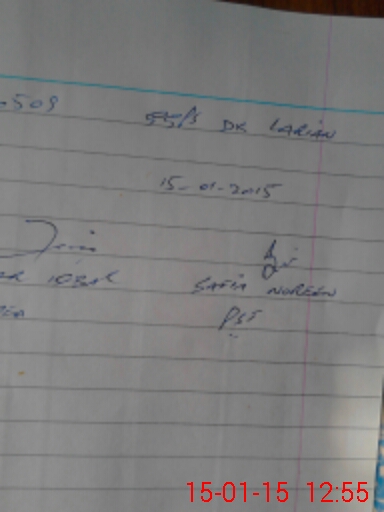 509 55/5 DK LARIAN
15-01-2015
IQBAL SAFIA NOREEN
PST
15-01-15 12:55